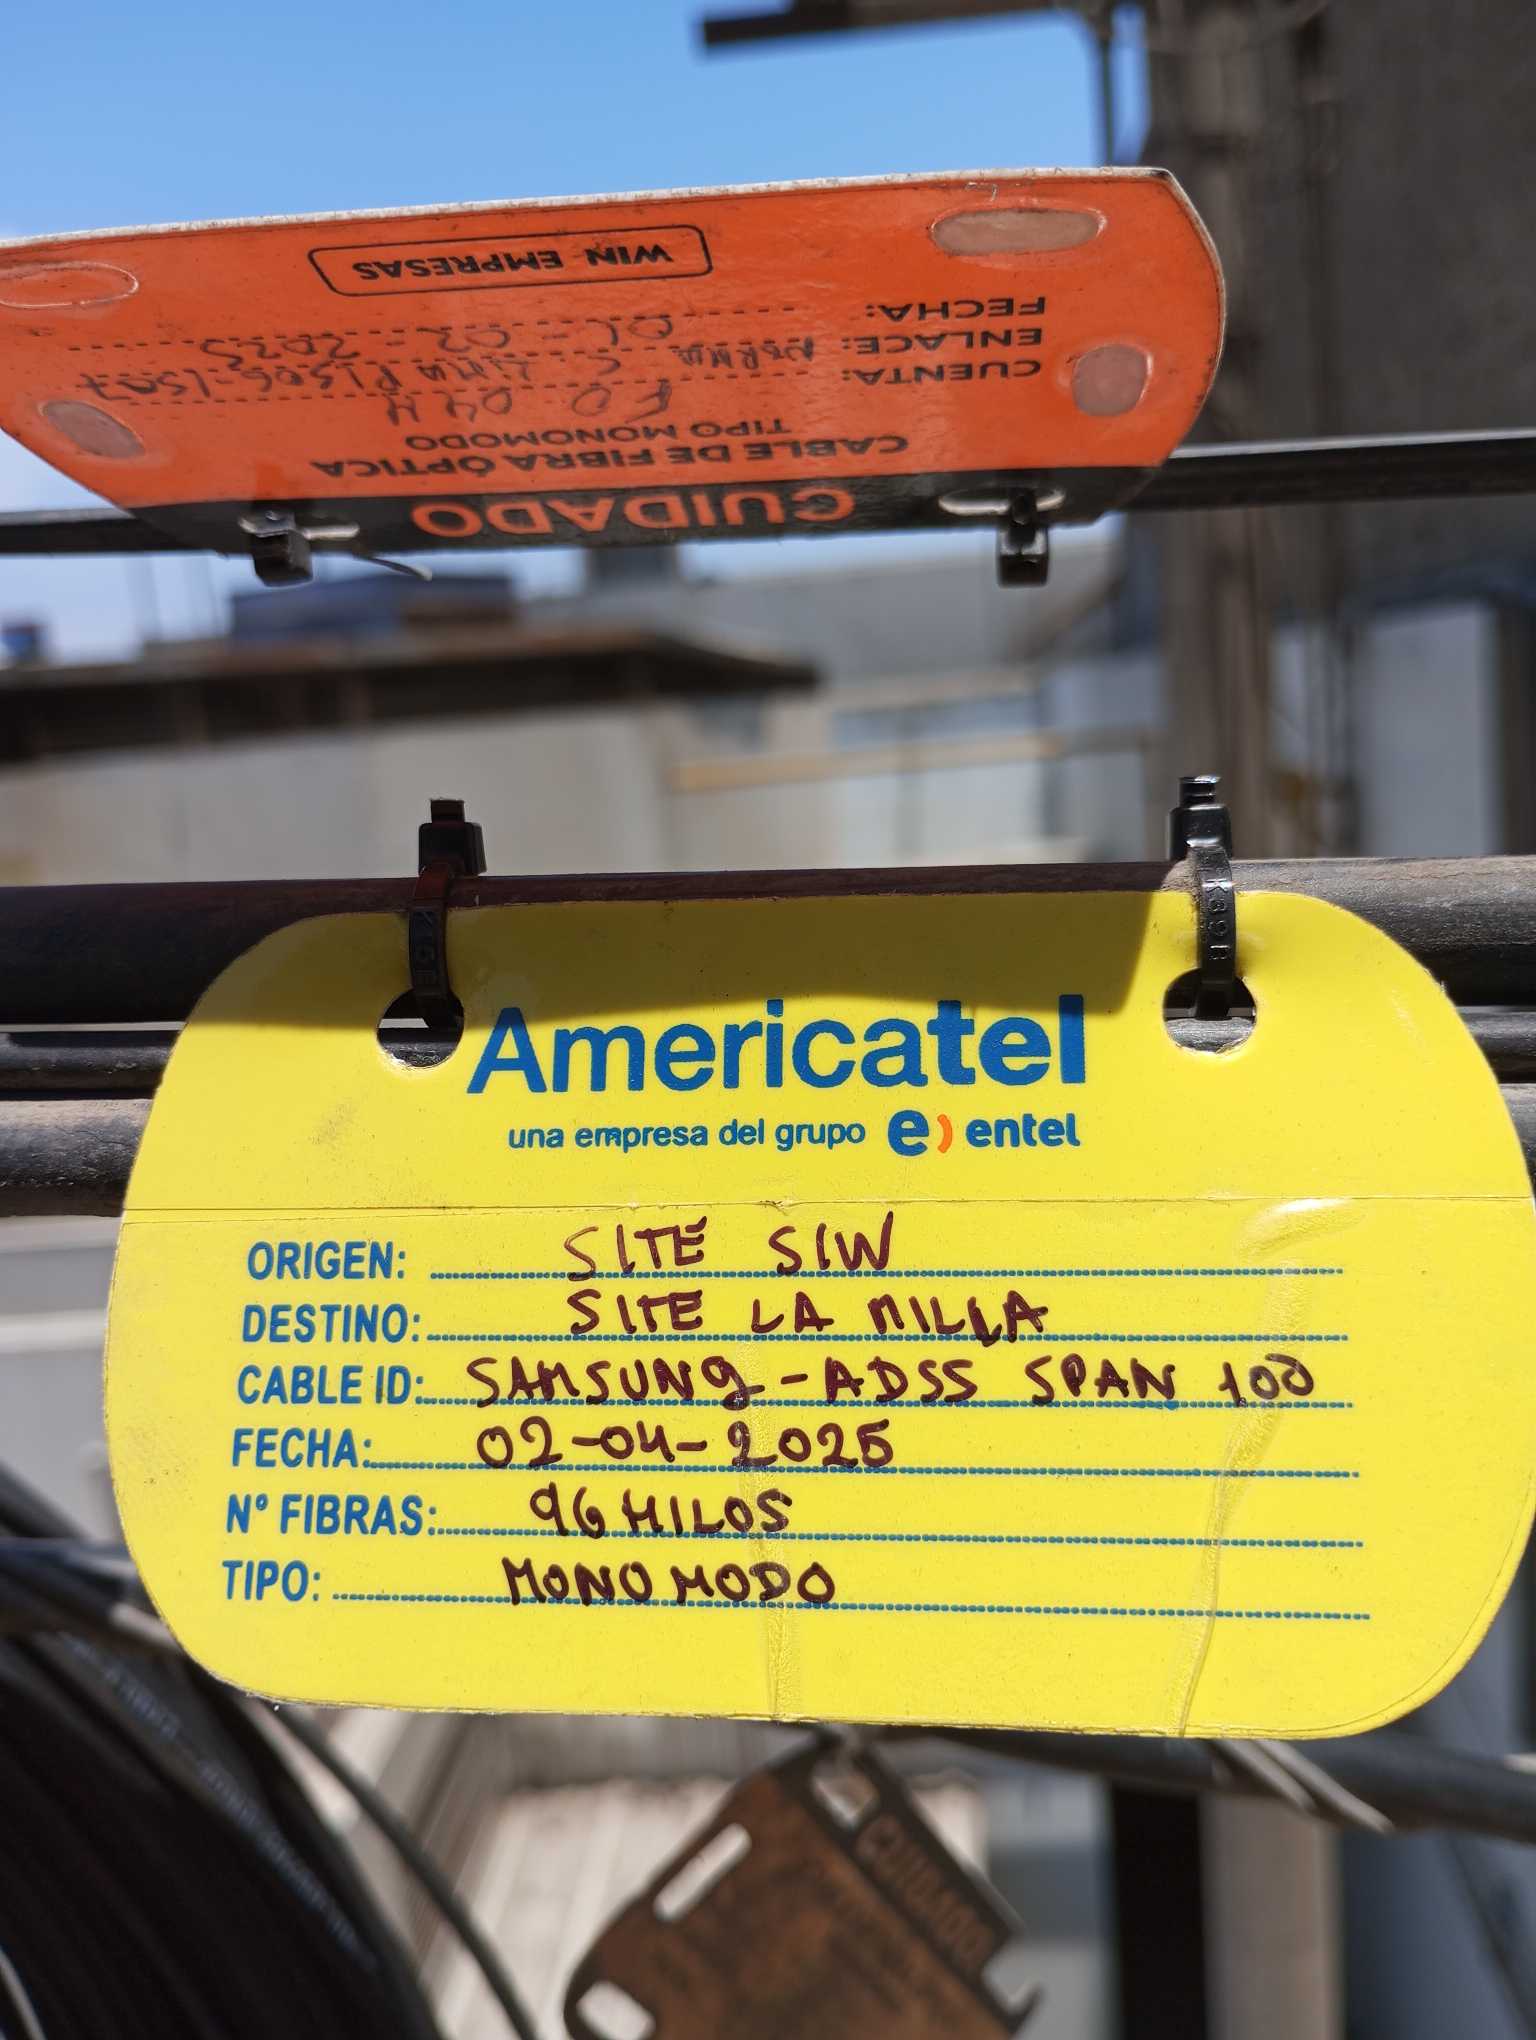 CUIDADO
CABLE DE FIBRA ÓPTICA
TIPO MONOMODO
FO 04H
CUENTA:
ENLACE:
FECHA: 02 - 2025
WIN EMPRESAS
Americatel
una empresa del grupo e) entel
ORIGEN: SITE SIW
DESTINO: SITE LA MILLA
CABLE ID: SAMSUNG - ADSS SPAN 100
FECHA: 02-04-2025
N° FIBRAS: 96 HILOS
TIPO: MONOMODO
CUIDADO